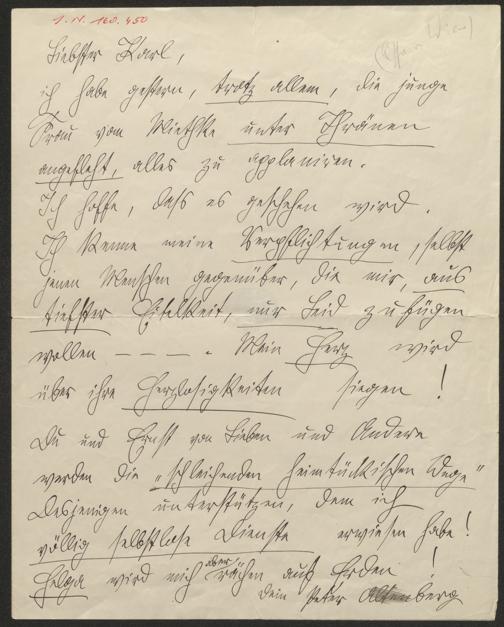 I. N. 160.450
Liebster Karl,
ich habe gestern, trotz allem, die junge
Frau von Miethke unter Thränen
angefleht, alles zu applaniren.
Ich hoffe, dass es geschehen wird.
Ich kenne meine Verpflichtungen, selbst
jenen Menschen gegenüber, die mir, aus
tiefster Eitelkeit, nur Leid zufügen
wollen — — — —. Mein Herz wird
über ihre Herzlosigkeiten siegen!
Du und Ernst von Lieben und Andere
werden die „schleichenden heimtückischen Wege"
Desjenigen unterstützen, dem ich
völlig selbstlose Dienste erwiesen habe!
Helga wird mich aber rächen auf Erden!
Dein Peter Altenberg